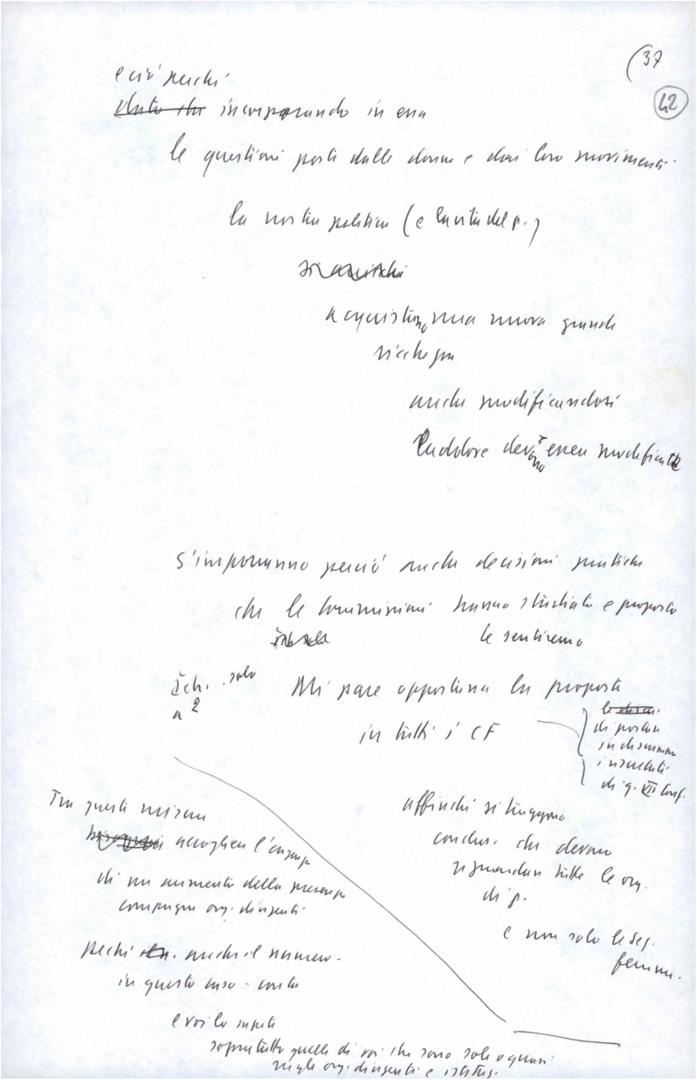 (37
42
e ciò perché
dato che incorporando in essa
le questioni poste dalle donne e dai loro movimenti
la nostra politica (e la vita del p.)
acquistano una nuova grande
ricchezza
anche modificandosi
laddove devono essere modificate
S'imporranno perciò anche decisioni pratiche
che le commissioni hanno studiato e proposto
le sentiremo
solo
Mi pare opportuna la proposta
in tutti i CF
di portare
in discussione
i risultati
di q. VII Conf.
affinché si traggano
conclus. che devono
riguardare tutte le org.
di p.
e non solo le sez.
femm.
Tra queste misure
accogliere l'esigenza
di un aumento della presenza
compagne org. dirigenti
perché anche il numero
in questo caso - conta
e voi lo sapete
soprattutto quelle di voi che sono sole o quasi
negli org. dirigenti e istituz.